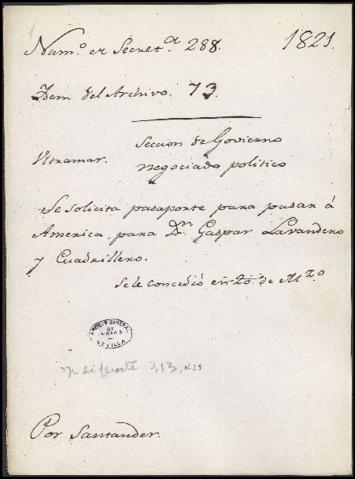 Num.º en Secret.ª 288. 1821.
Idem del Archivo. 73.
Seccion de Govierno
Ultramar. negociado politico
Se solicita pasaporte para pasar á
America para Dn. Gaspar Lavandero
y Cuadrillero.
Se le concedió en 20. de Mzo.
ARCHIVO GENERAL
DE
INDIAS
SEVILLA
313, N.25
Por Santander.